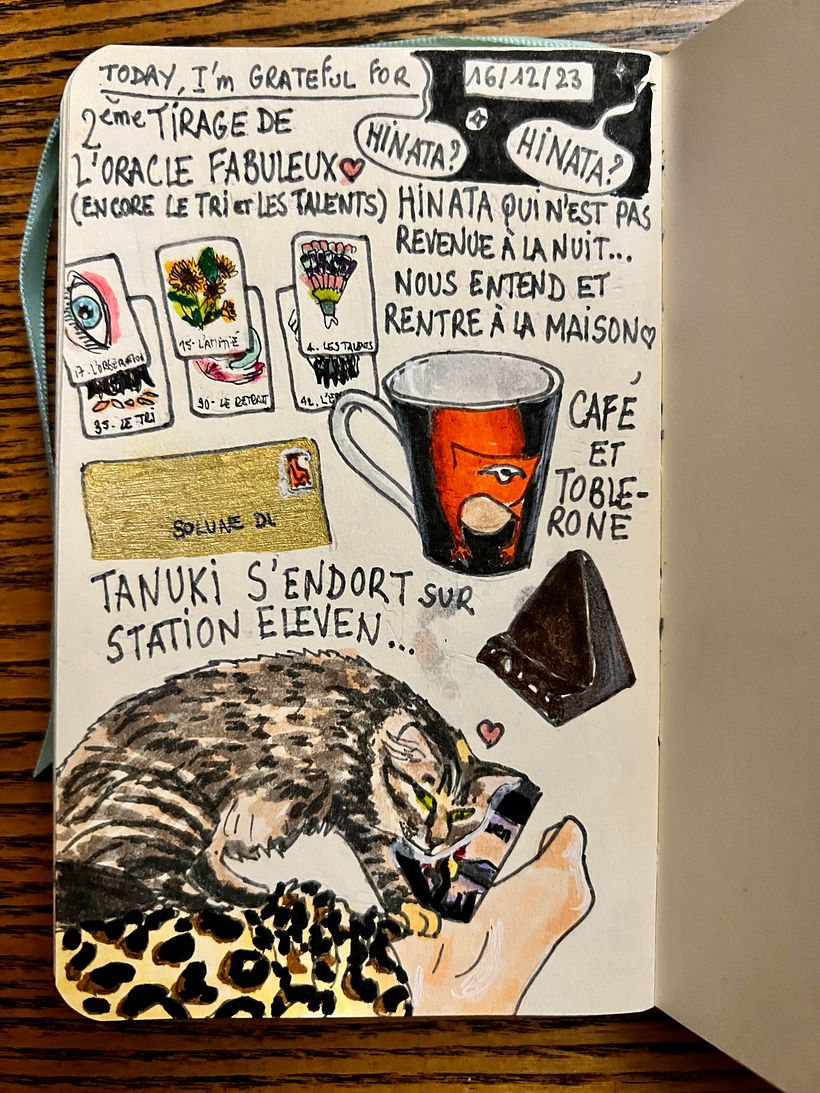 TODAY, I'm GRATEFUL FOR
16/12/23
2ème TIRAGE DE
L'ORACLE FABULEUX
(ENCORE LE TRI et LES TALENTS)
HINATA?
HINATA?
HINATA QUI N'EST PAS
REVENUE À LA NUIT...
NOUS ENTEND ET
RENTRE À LA MAISON
17. L'OBSERVATION
35. LE TRI
15. L'AMITIÉ
30. LE RETRAIT
4. LES TALENTS
42. L'
CAFÉ
ET
TOBLE-
RONE
SOLUNE DI
TANUKI S'ENDORT SUR
STATION ELEVEN...